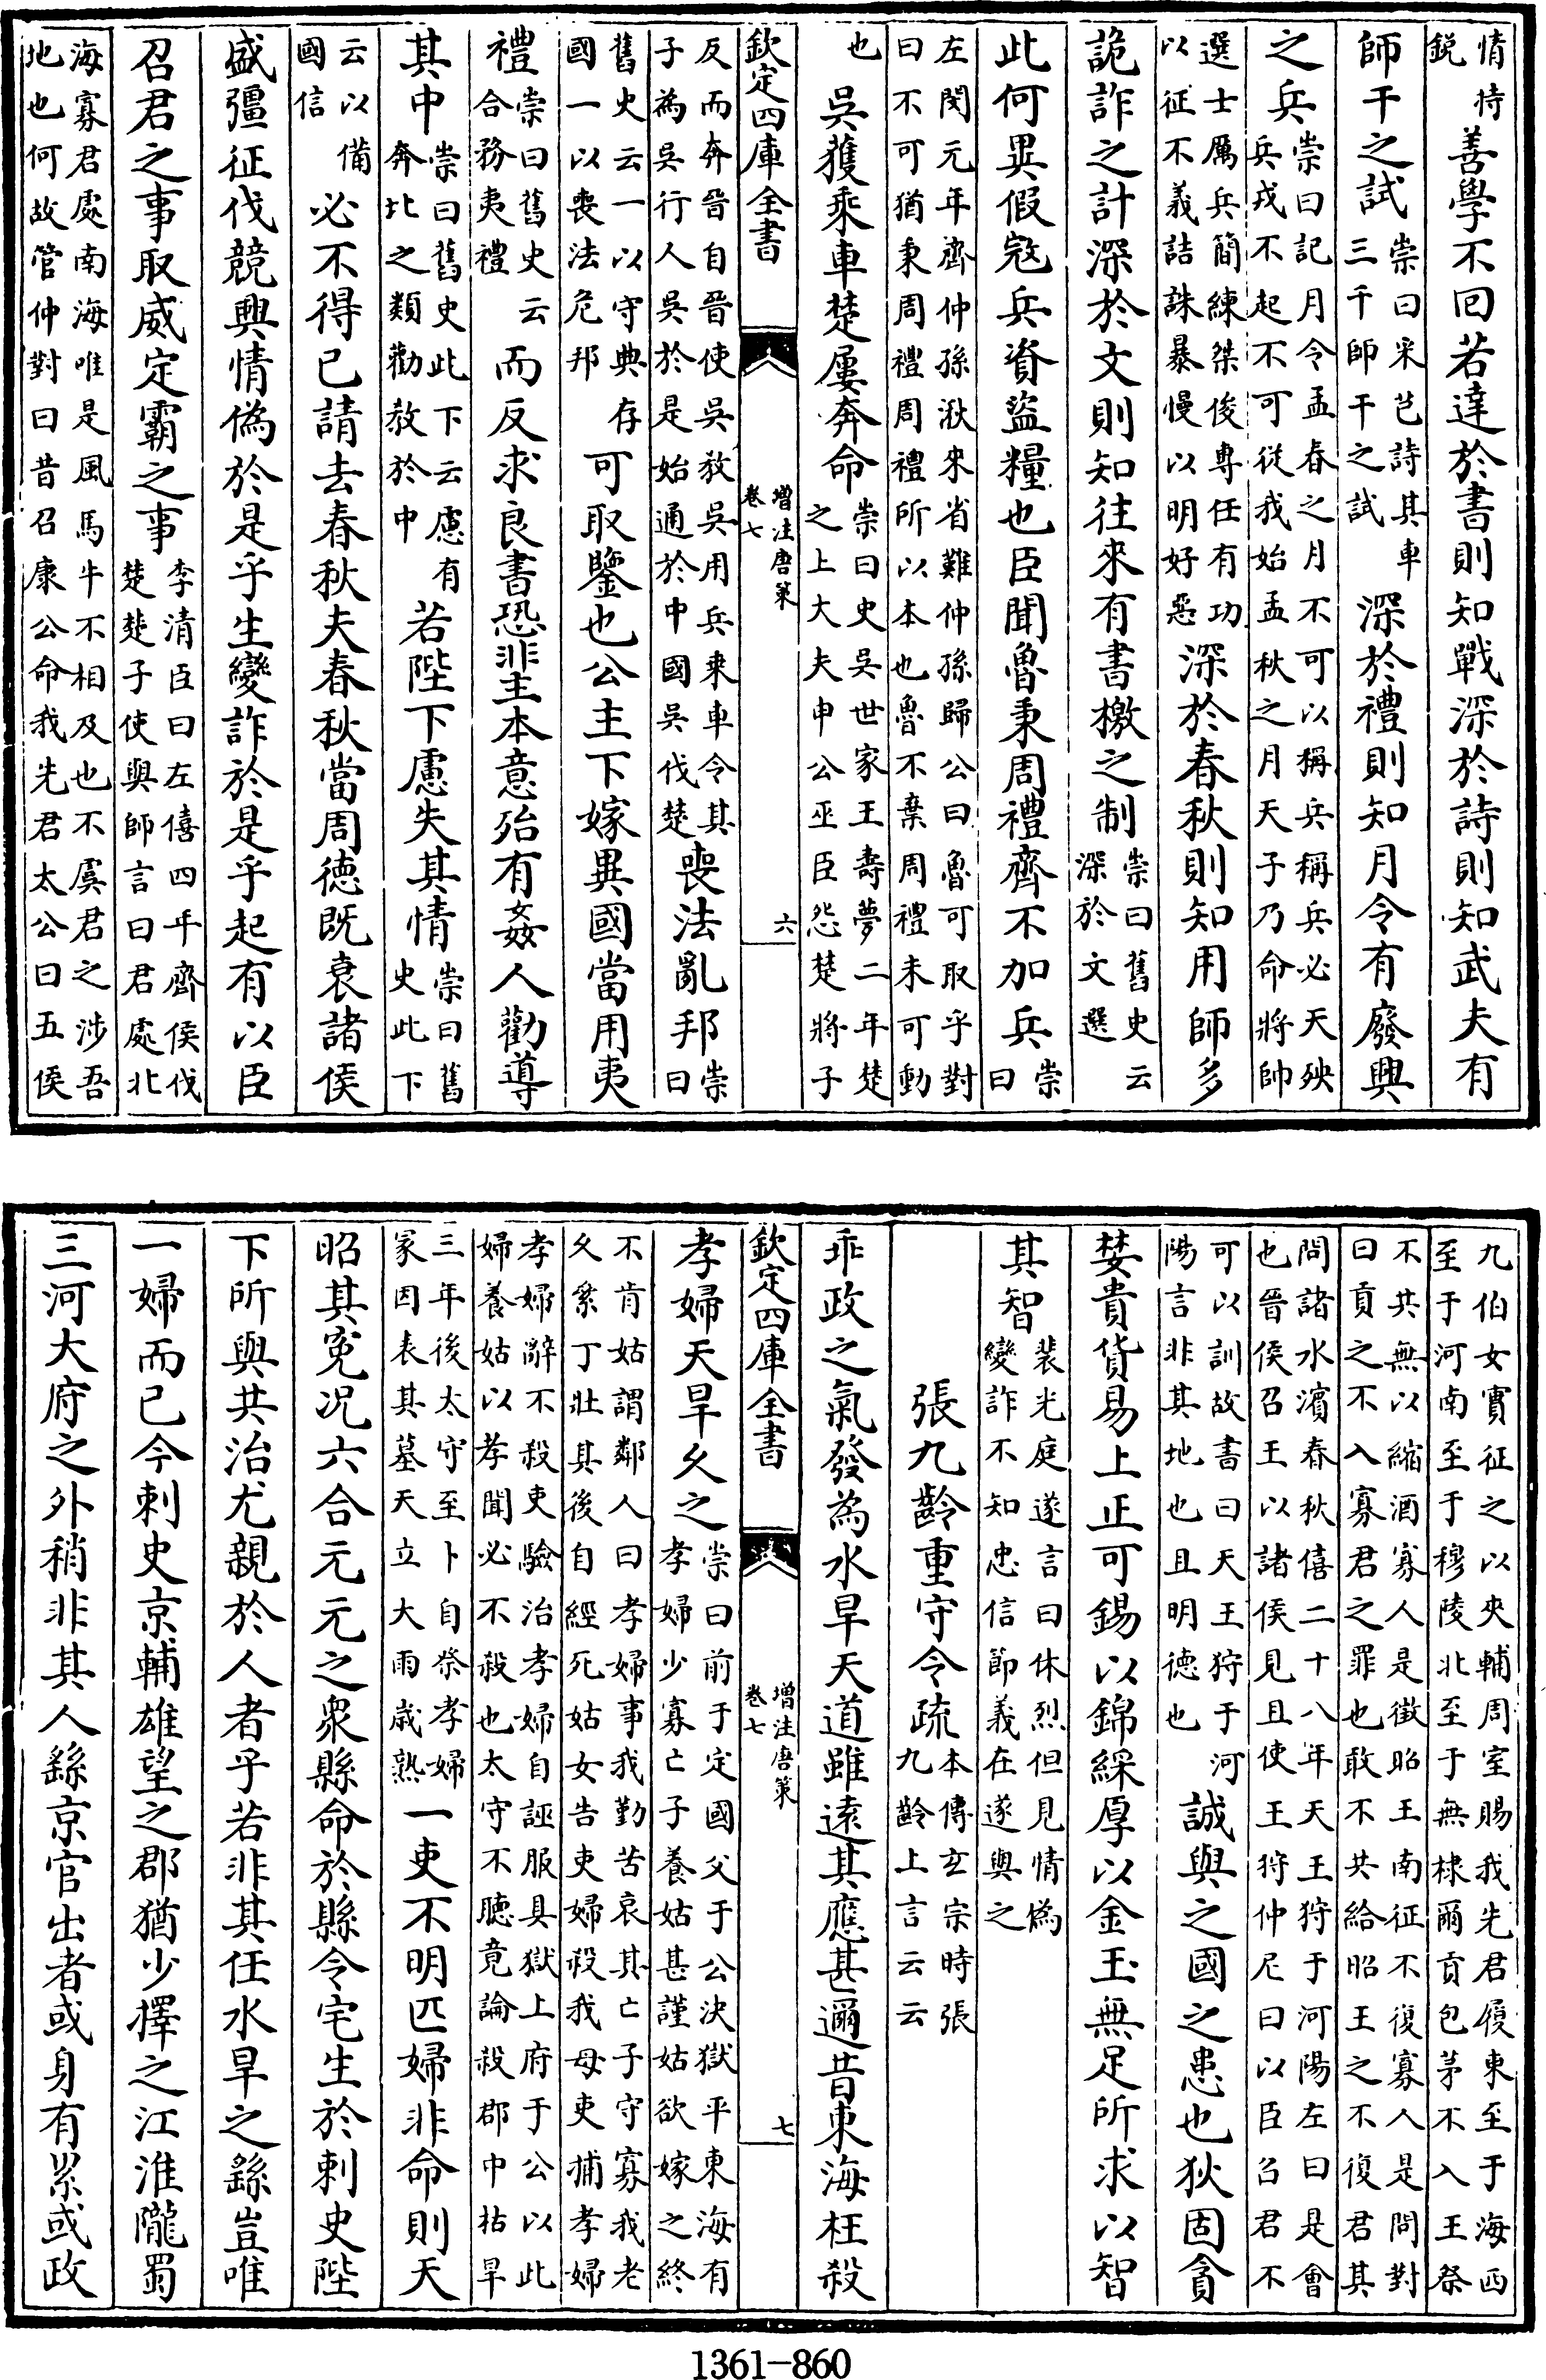 情持善學不回若達於書則知戰深於詩則知武夫有
鋭
師干之試崇曰采芑詩其車三千師干之試深於禮則知月令有廢興
之兵崇曰記月令孟春之月不可以稱兵稱兵必天殃兵戎不起不可從我始孟秋之月天子乃命將帥
選士厲兵簡練桀俊專任有功以征不義詰誅暴慢以明好惡深於春秋則知用師多
詭詐之計深於文則知往來有書檄之制崇曰舊史云深於文選
此何異假寇兵資盜糧也臣聞魯秉周禮齊不加兵崇曰
左閔元年齊仲孫湫來省難仲孫歸公曰魯可取乎對曰不可猶秉周禮周禮所以本也魯不棄周禮未可動
也吳獲乘車楚屢奔命崇曰史吳世家王壽夢二年楚之上大夫申公巫臣怨楚將子
欽定四庫全書 增注唐策 卷七 六
反而奔晉自晉使吳教吳用兵乘車令其子為吳行人吳於是始通於中國吳伐楚喪法亂邦崇曰
舊史云一以守典存國一以喪法危邦可取鑒也公主下嫁異國當用夷
禮崇曰舊史云合務夷禮而反求良書恐非主本意殆有姦人勸導
其中崇曰舊史此下云慮有奔北之類勸教於中若陛下慮失其情崇曰舊史此下
云以備國信必不得已請去春秋夫春秋當周德既衰諸侯
盛彊征伐競興情偽於是乎生變詐於是乎起有以臣
召君之事取威定霸之事李清臣曰左僖四年齊侯伐楚楚子使與師言曰君處北
海寡君處南海唯是風馬牛不相及也不虞君之涉吾地也何故管仲對曰昔召康公命我先君太公曰五侯
九伯女實征之以夾輔周室賜我先君履東至于海西至于河南至于穆陵北至于無棣爾貢包茅不入王祭
不共無以縮酒寡人是徵昭王南征不復寡人是問對曰貢之不入寡君之罪也敢不共給昭王之不復君其
問諸水濱春秋僖二十八年天王狩于河陽左曰是會也晉侯召王以諸侯見且使王狩仲尼曰以臣召君不
可以訓故書曰天王狩于河陽言非其地也且明德也誠與之國之患也狄固貪
婪貴貨易上正可錫以錦綵厚以金玉無足所求以智
其智裴光庭遂言曰休烈但見情偽變詐不知忠信節義在遂與之
張九齡重守令疏本傳玄宗時張九齡上言云云
乖政之氣發為水旱天道雖遠其應甚邇昔東海枉殺
欽定四庫全書 增注唐策 卷七 七
孝婦天旱久之崇曰前于定國父于公決獄平東海有孝婦少寡亡子養姑甚謹姑欲嫁之終
不肯姑謂鄰人曰孝婦事我勤苦哀其亡子守寡我老久絫丁壯其後自經死姑女告吏婦殺我母吏捕孝婦
孝婦辭不殺吏驗治孝婦自誣服具獄上府于公以此婦養姑以孝聞必不殺也太守不聽竟論殺郡中枯旱
三年後太守至卜自祭孝婦冢因表其墓天立大雨歲熟一吏不明匹婦非命則天
昭其冤况六合元元之衆縣命於縣令宅生於刺史陛
下所與共治尤親於人者乎若非其任水旱之繇豈唯
一婦而已今刺史京輔雄望之郡猶少擇之江淮隴蜀
三河大府之外稍非其人繇京官出者或身有累或政
1361-860